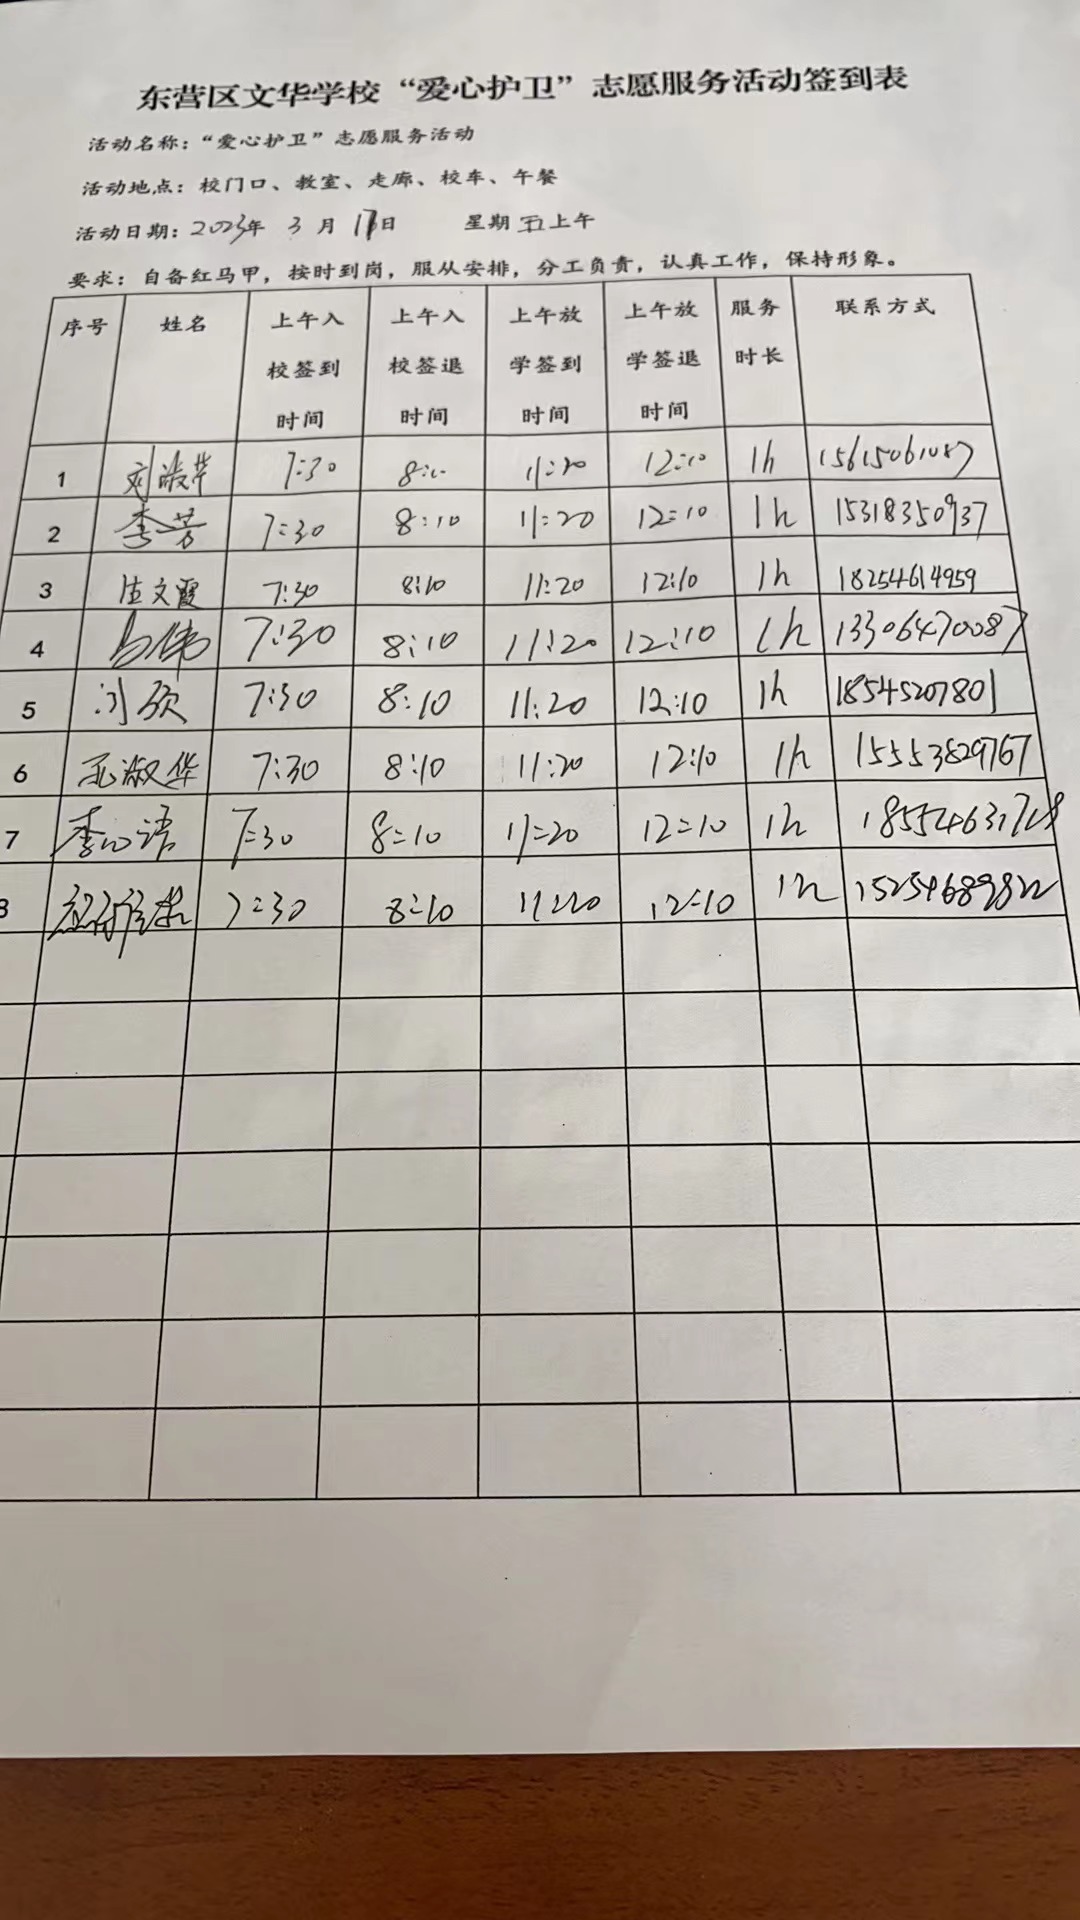 东营区文华学校“爱心护卫”志愿服务活动签到表
活动名称：“爱心护卫”志愿服务活动
活动地点：校门口、教室、走廊、校车、午餐
活动日期：2023年 3 月 17日 星期五上午
要求：自备红马甲，按时到岗，服从安排，分工负责，认真工作，保持形象。
序号 姓名 上午入校签到时间 上午入校签退时间 上午放学签到时间 上午放学签退时间 服务时长 联系方式
1 7:30 8:10 11:20 12:10 1h 15615061087
2 李芳 7:30 8:10 11:20 12:10 1h 15318350937
3 文霞 7:30 8:10 11:20 12:10 1h 18254614959
4 7:30 8:10 11:20 12:10 1h 13306470087
5 7:30 8:10 11:20 12:10 1h 18545207801
6 淑华 7:30 8:10 11:20 12:10 1h 15553829767
7 李心语 7:30 8:10 11:20 12:10 1h
8 7:30 8:10 11:20 12:10 1h 15254689822